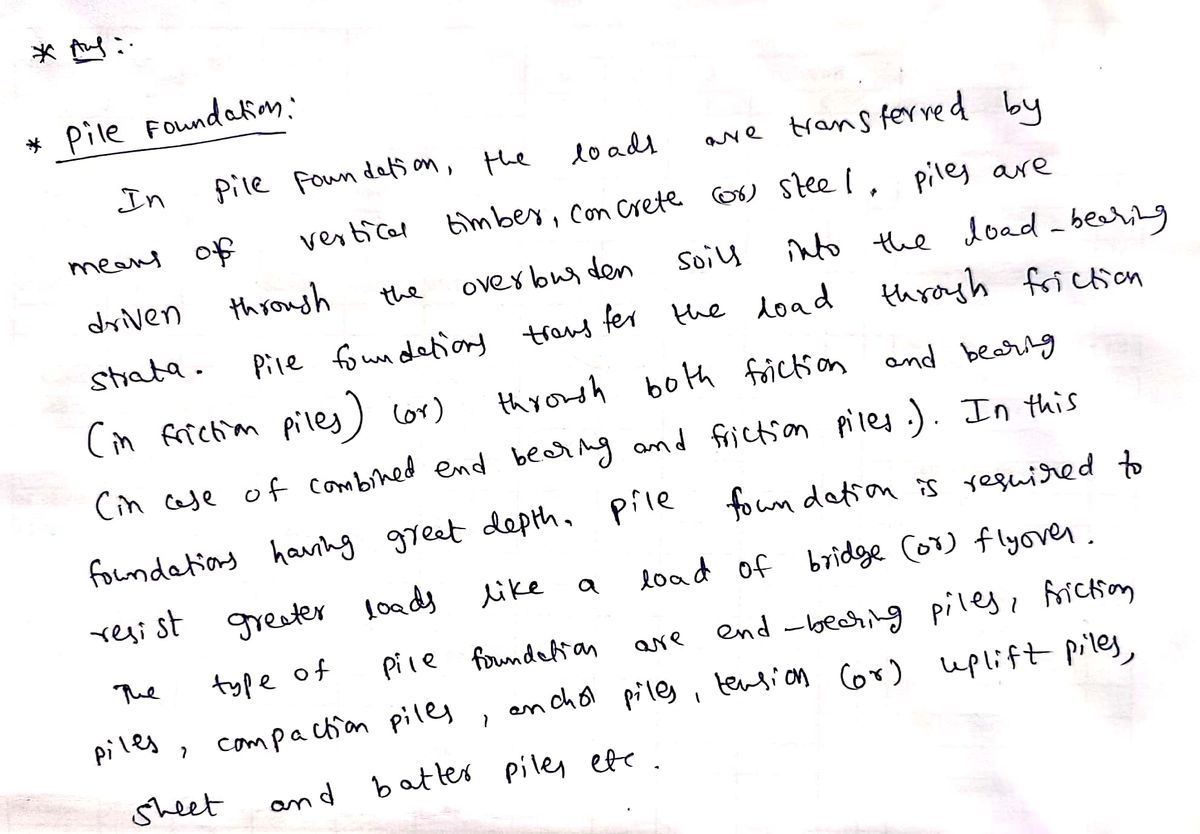 * Ans :-
* Pile Foundation:
In Pile Foundation, the loads are transferred by
means of vertical timber, Concrete (or) steel. piles are
driven through the overburden soils into the load-bearing
strata. Pile foundations transfer the load through friction
(in friction piles) (or) through both friction and bearing
(in case of combined end bearing and friction piles.). In this
foundations having great depth. Pile foundation is required to
resist greater loads like a load of bridge (or) flyover.
The type of pile foundation are end-bearing piles, friction
piles, compaction piles, anchor piles, tension (or) uplift piles,
sheet and batter piles etc.